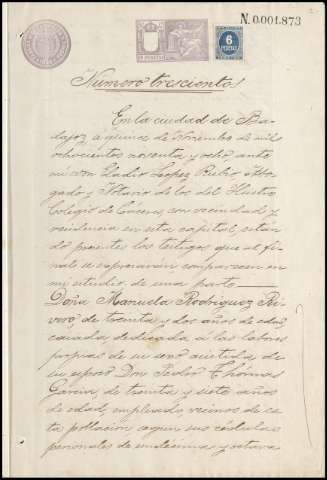 N.0.001.873
6
PESETAS
Número trescientos
En la ciudad de Ba-
dajoz a quince de Noviembre de mil
ochocientos noventa y ocho, ante
mi Don Eladio Lopez Rubio Abo-
gado y Notario de los del Ilustre
Colegio de Cáceres, con vecindad y
residencia en esta capital, están-
do presentes los testigos que al fi-
nal se expresarán comparecen en
mi estudio de una parte
Doña Manuela Rodriguez Ri-
vero, de treinta y dos años de edad,
casada, dedicada a las labores
propias de su sexo asistida de
su esposo Don Pedro Thomas
Garcia, de treinta y siete años
de edad, empleado, vecinos de es-
ta población segun sus cédulas
personales de undécima y octava